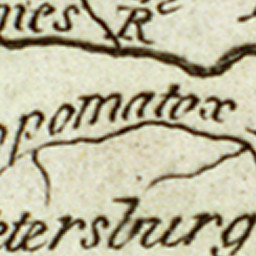 mes
R
opomatox
etersburg